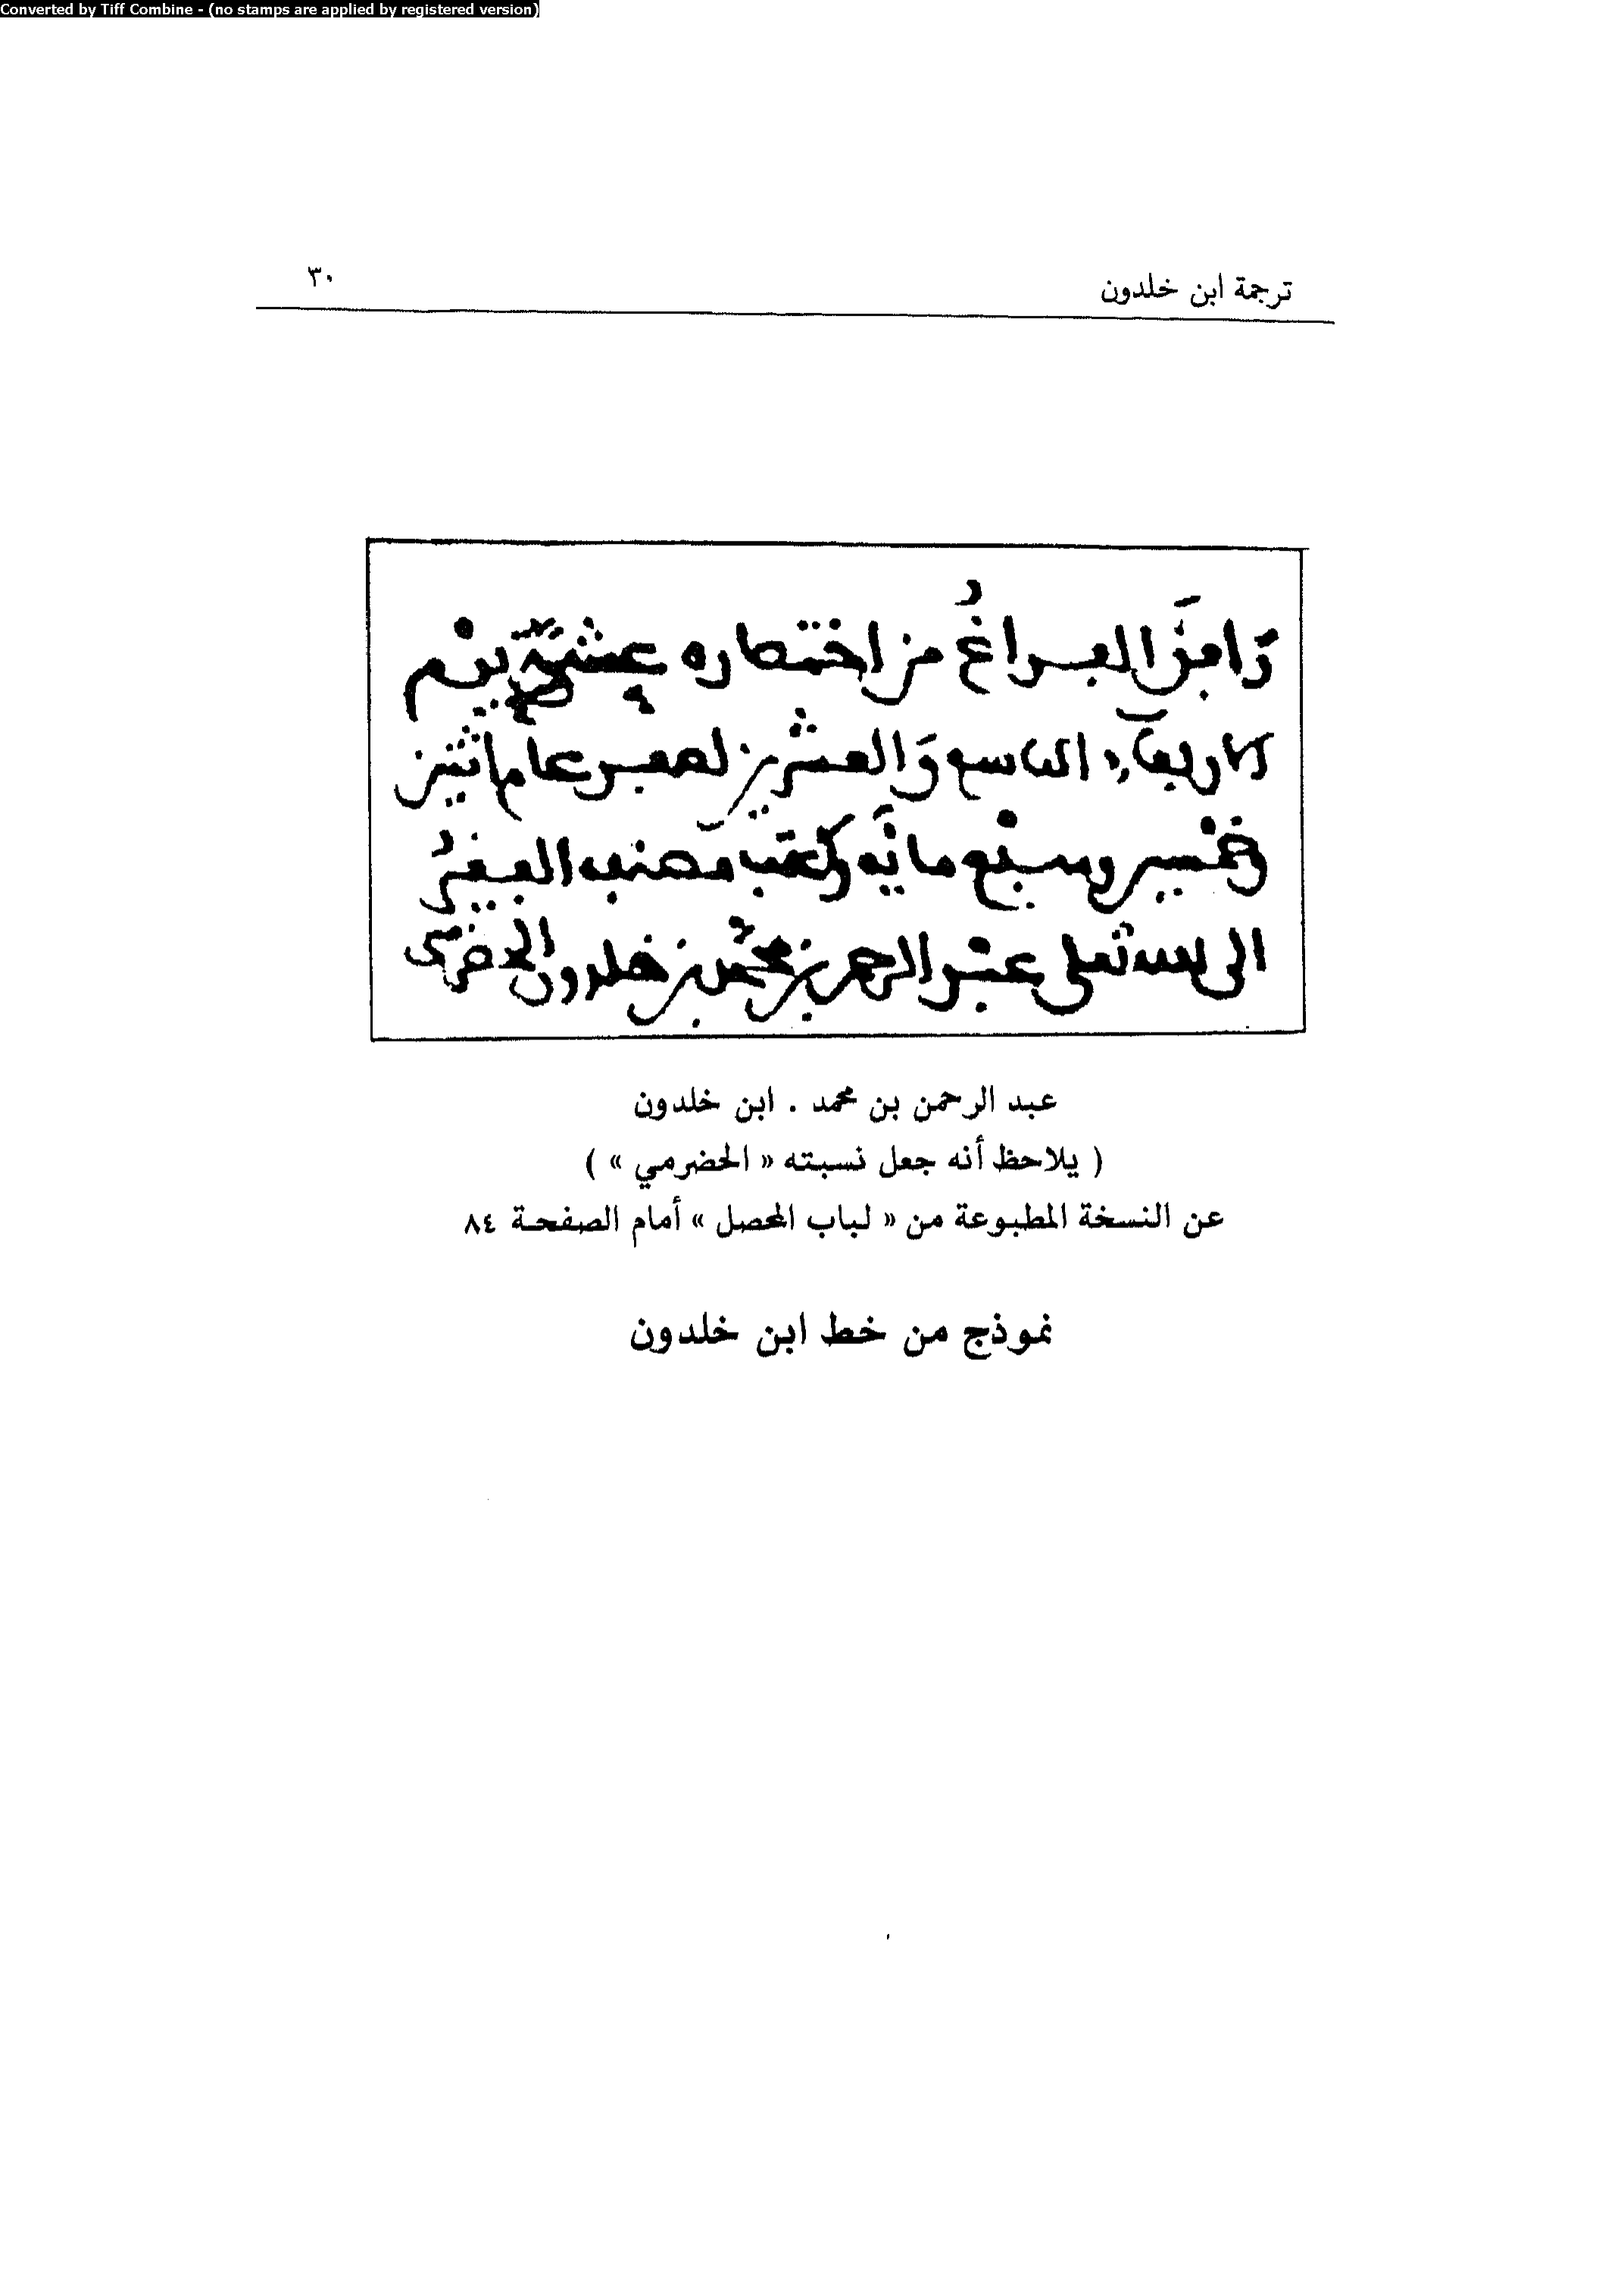 Converted by Tiff Combine - (no stamps are applied by registered version)
ترجمة ابن خلدون
٣٠
وَافَقَ الفراغُ من اختصاره عشية يوم
الاربعاء التاسع وَالعشرين لصفر عام اثنين
وخمسين وسبع مايه وكتب مصنفه الفقيرُ
الى الله تعلى عبد الرحمن بن محمد بن خلدون الحضرمى
عبد الرحمن بن محمد . ابن خلدون
( يلاحظ أنه جعل نسبته « الحضرمي » )
عن النسخة المطبوعة من « لباب المحصل » أمام الصفحة ٨٤
نموذج من خط ابن خلدون